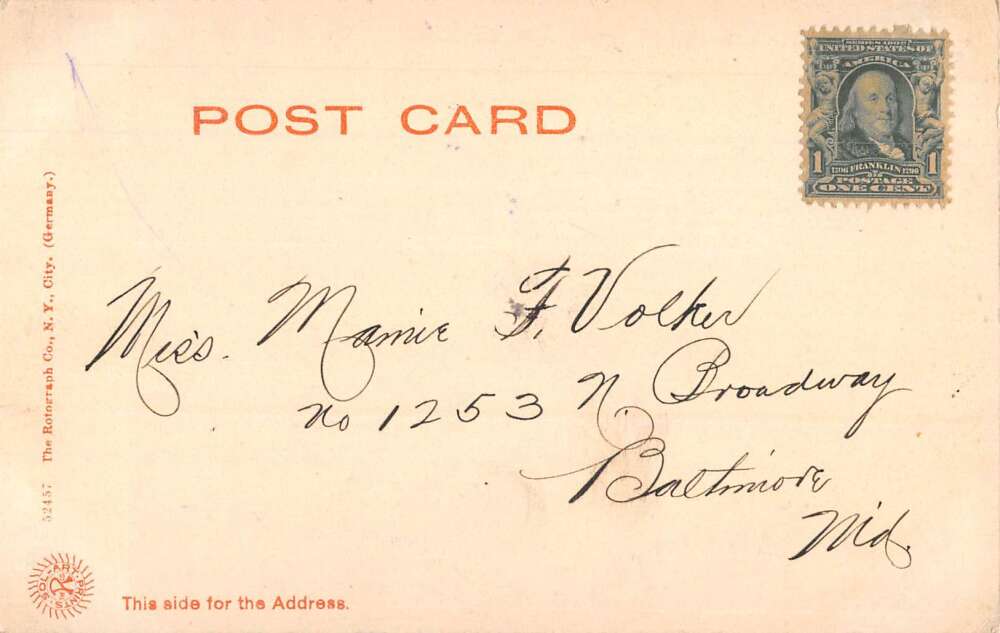 POST CARD
SERIES 1902
UNITED STATES OF
AMERICA
1 1
FRANKLIN
POSTAGE
ONE CENT
Miss. Mamie F. Volker
No 1253 N. Broadway
Baltimore
Md.
52457 The Rotograph Co., N. Y., City. (Germany.)
SOL-ART-PRINTS
This side for the Address.